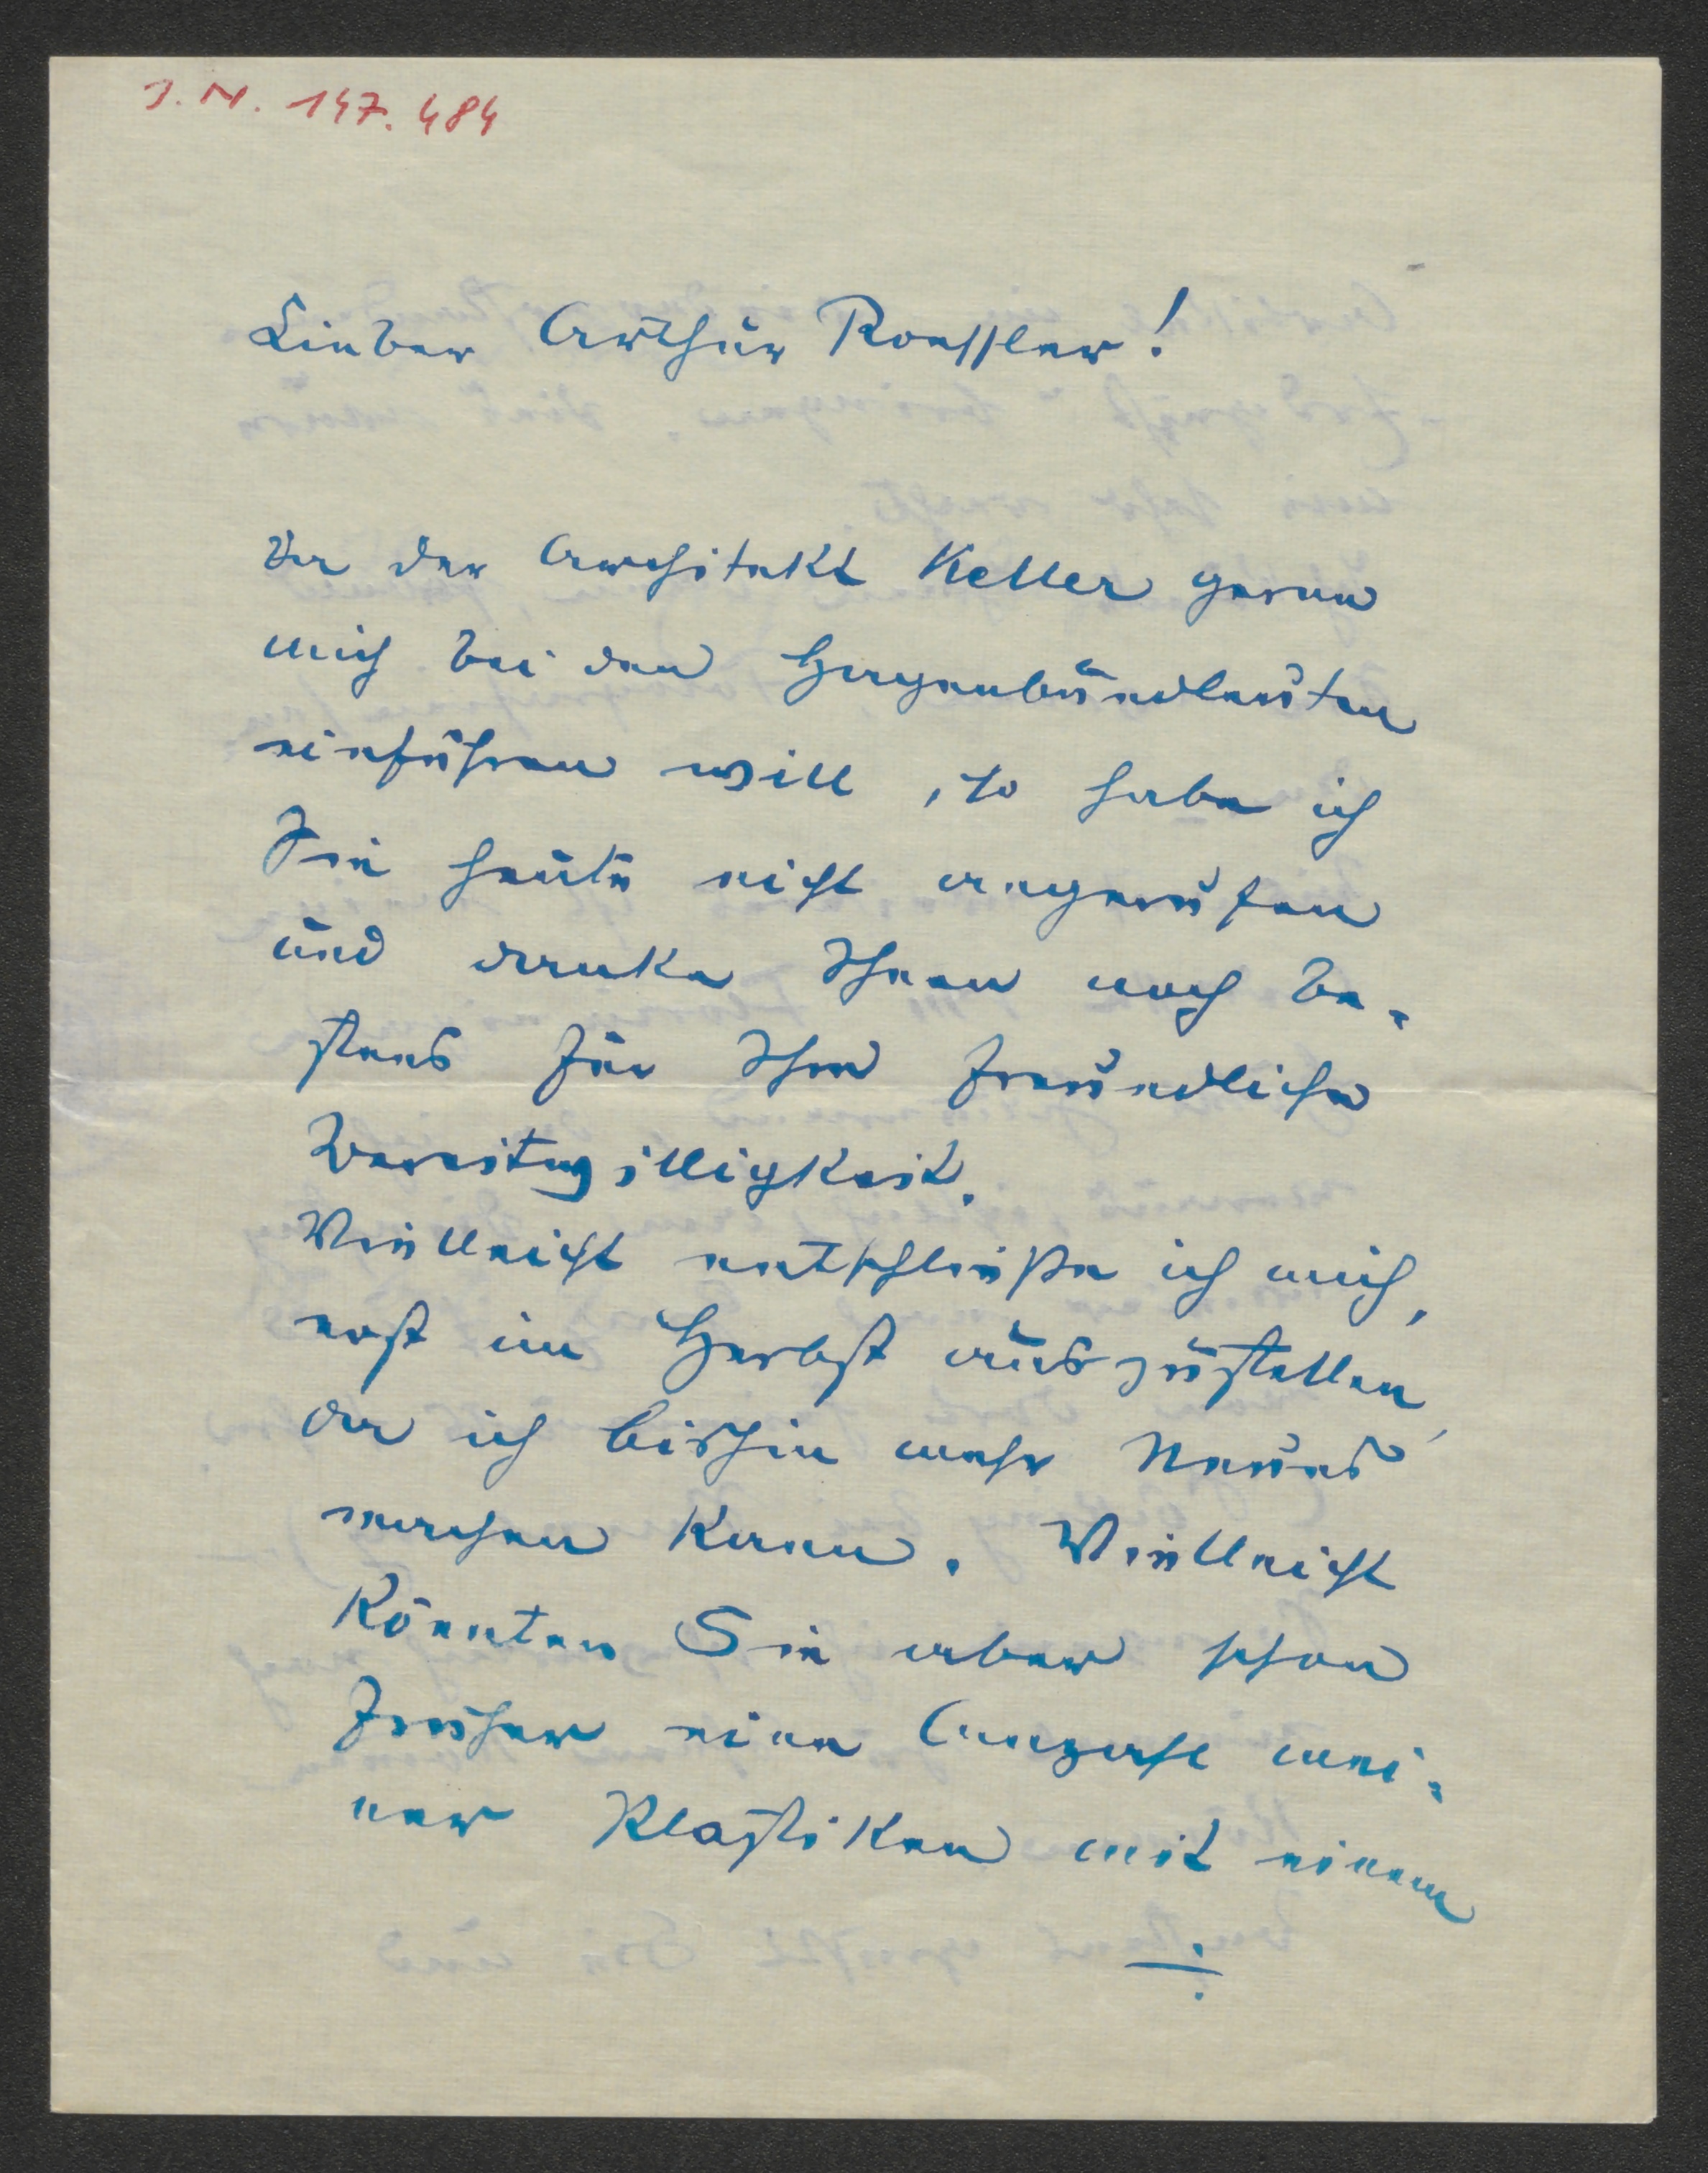 J.N. 147.484
Lieber Arthur Roessler!
Da der Architekt Keller gerne
mich bei den Hagenbundleuten
einführen will, so habe ich
Sie heute nicht angerufen
und danke Ihnen noch be-
stens für Ihre freundliche
Bereitwilligkeit.
Vielleicht entschließe ich mich,
erst im Herbst auszustellen,
da ich bishin mehr Neues
machen kann. Vielleicht
könnten Sie aber schon
früher eine Anzahl mei-
ner Plastiken mit einem
÷